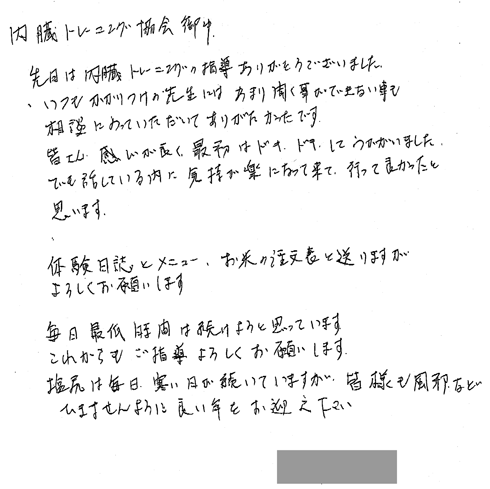 内臓トレーニング協会御中
先日は内臓トレーニングの指導ありがとうございました。
いつもかかりつけの先生にはあまり聞く事ができない事も
相談にのっていただいてありがたかったです。
皆さん感じが良く、最初はドキドキしてうかがいました。
でも話している内に気持が楽になって来て、行って良かったと
思います。
体験日誌とメニュー、お米の注文表を送りますが
よろしくお願いします
毎日最低時間は続けようと思っています
これからもご指導よろしくお願いします。
塩尻は毎日寒い日が続いていますが、皆様も風邪など
ひきませんように良い年をお迎え下さい